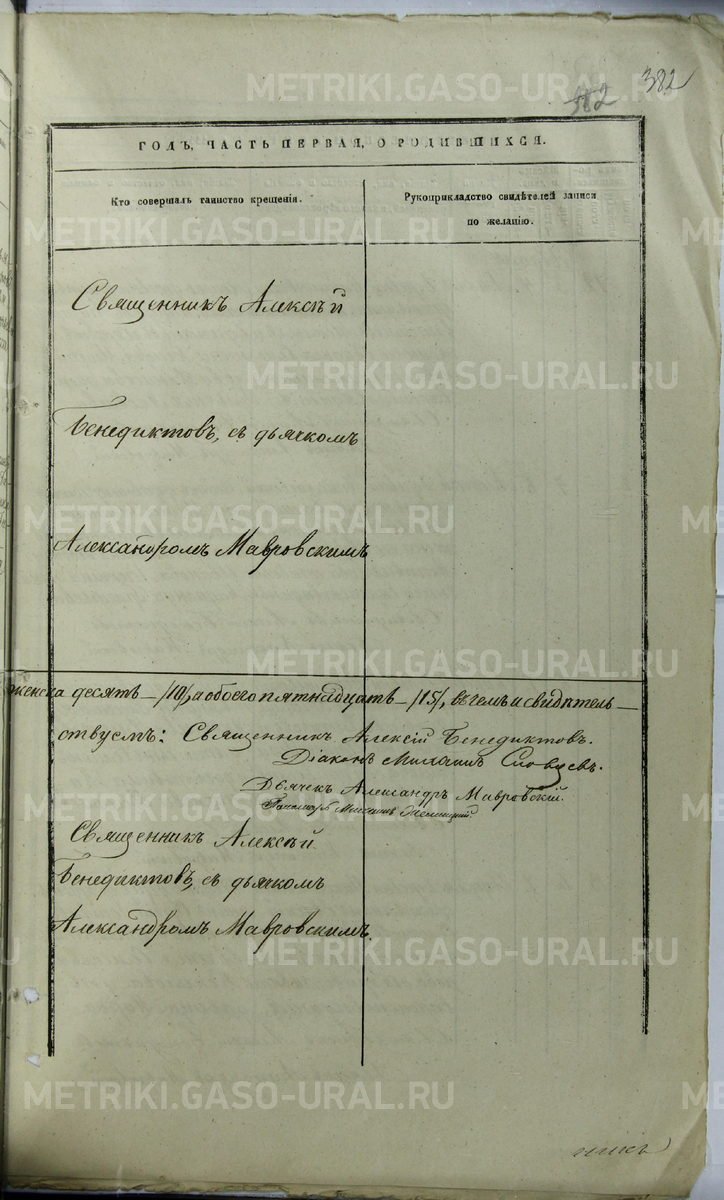 382
382
ГОДЪ, ЧАСТЬ ПЕРВАЯ, О РОДИВШИХСЯ.
Кто совершалъ таинство крещенія.
Рукоприкладство свидѣтелей записи
по желанію.
Священникъ Алексѣй
Бенедиктовъ, съ дьячкомъ
Александромъ Мавровскимъ
женска десять — /10/, а обоего пятнадцать — /15/, въ чемъ и свидѣтель—
ствуемъ: Священникъ Алексій Бенедиктовъ.
Діаконъ Михаилъ Словцевъ.
Дьячекъ Александръ Мавровскій.
Пономарь Михаилъ
Священникъ Алексѣй
Бенедиктовъ, съ дьячкомъ
Александромъ Мавровскимъ.
METRIKI.GASO-URAL.RU